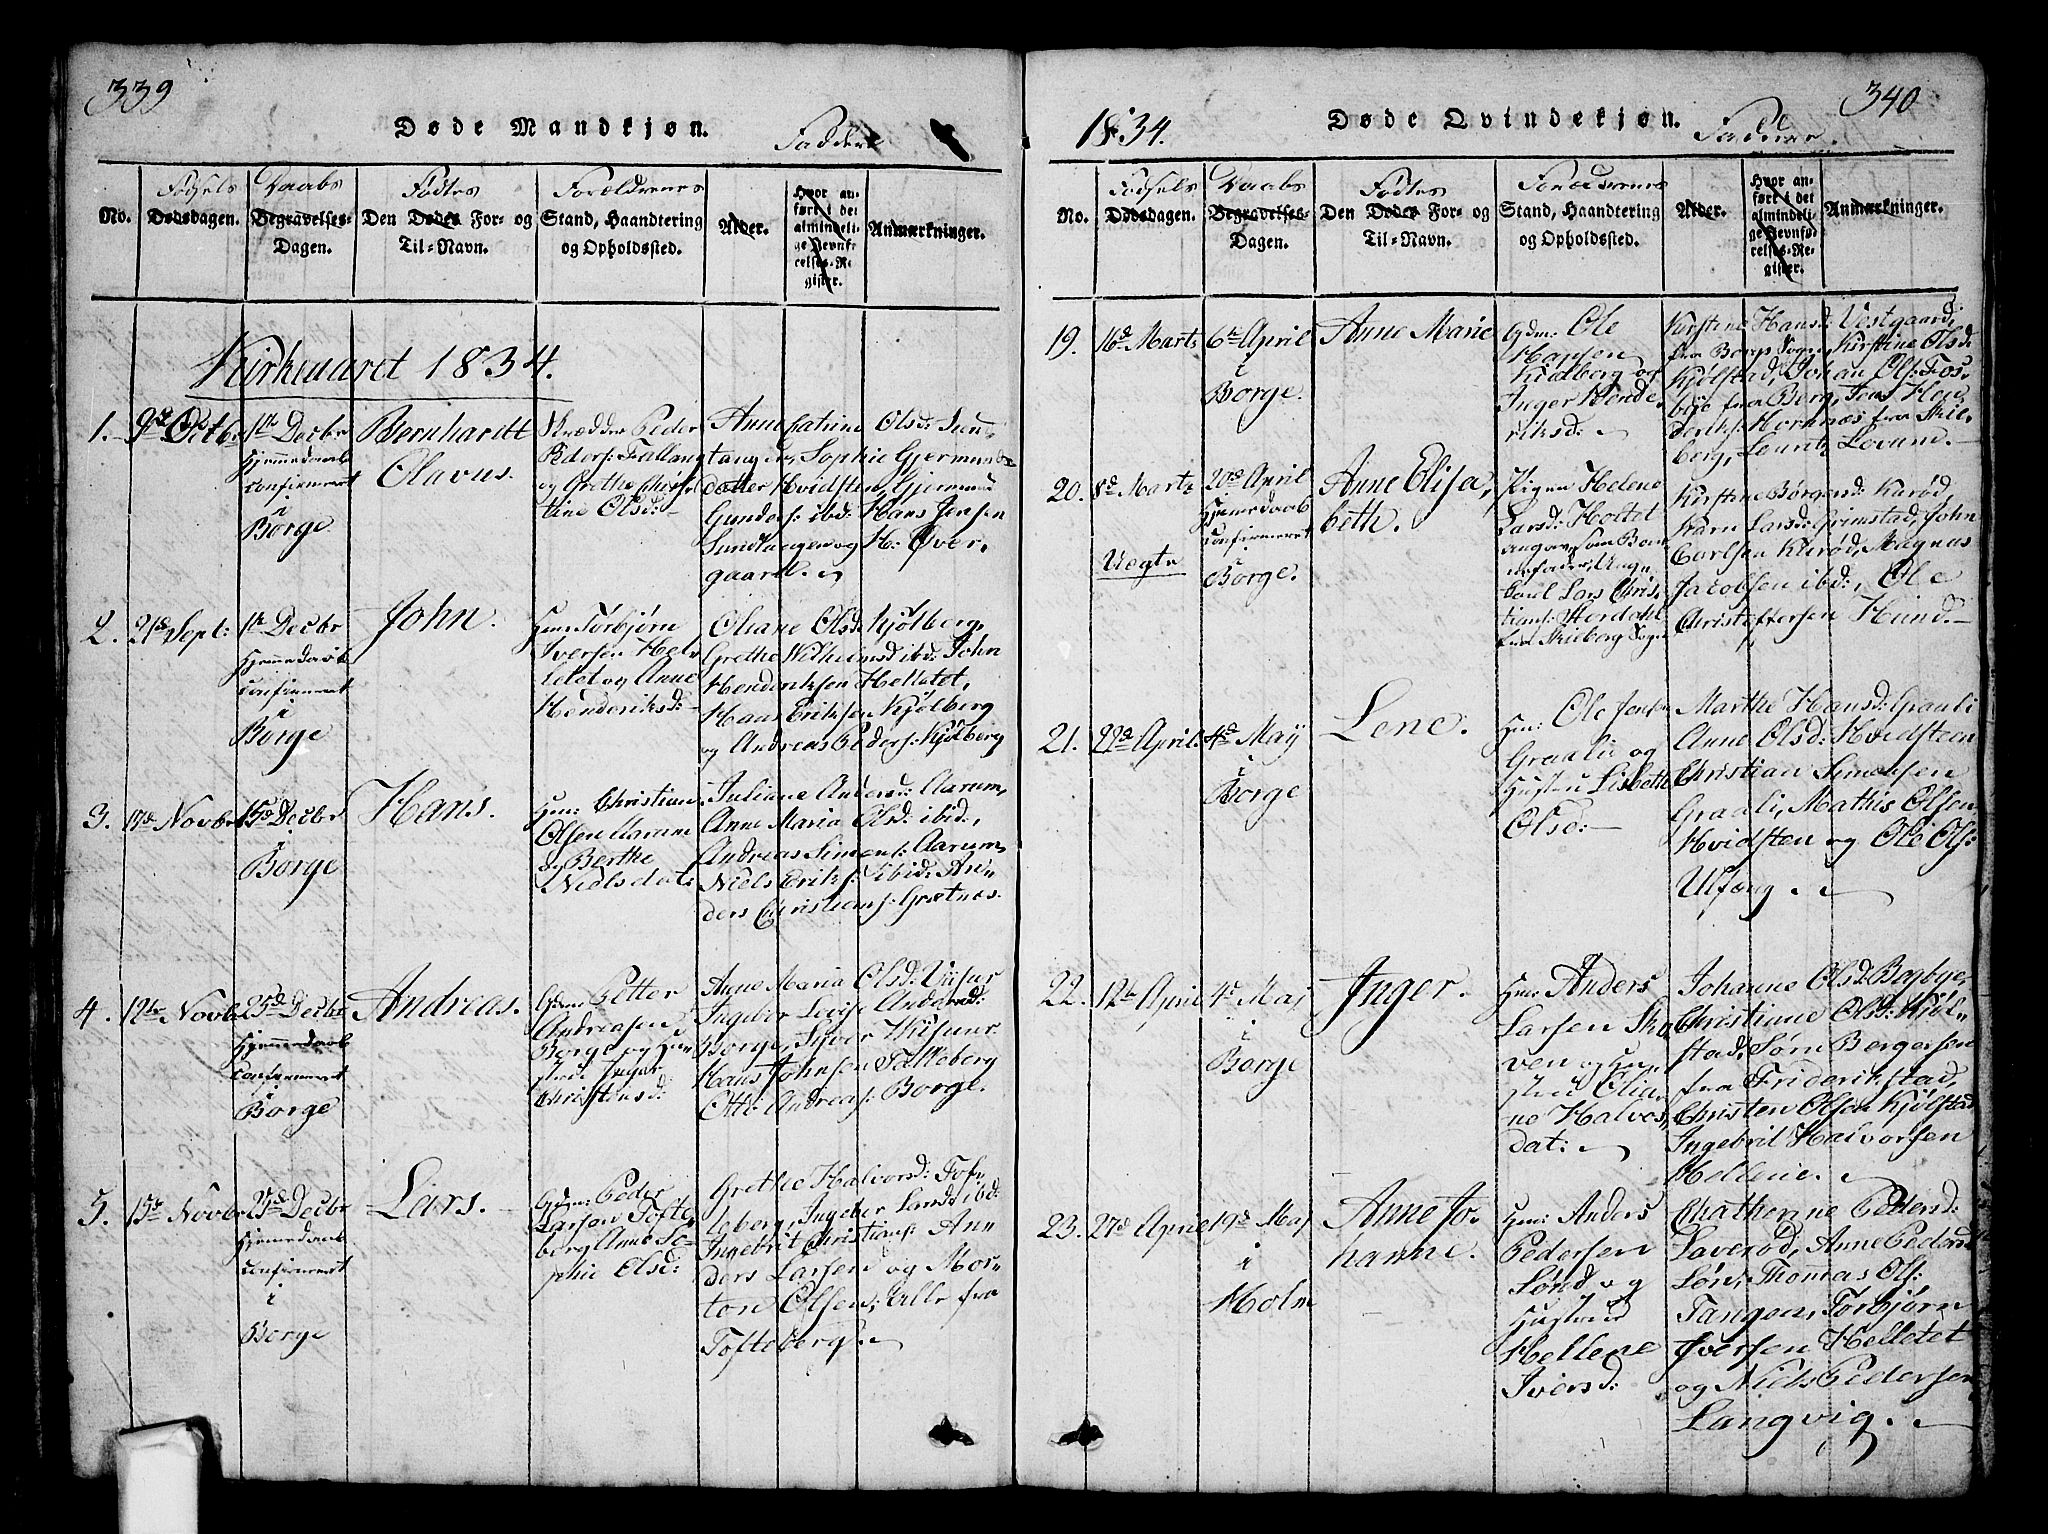 339
Døde Mandkjøn.
Faddere
No.
Fødsels
Dødsdagen.
Daabs
Begravelses-
Dagen.
Fødtes
Den Dødes For- og
Til-Navn.
Forældrenes
Stand, Haandtering
og Opholdssted.
Alder.
Hvor an-
ført i det
almindeli-
ge Jevnfø-
relses-Re-
gister.
Anmærkninger.
Kirkeaaret 1834.
1.
9de Octbr
1te Decbr
Hjemmedaab
confirmeret
i
Borge.
Bernhardt
Olavus.
Skrædder Peder
Peders: Fallang
og Grethe Chris
tine Olsd:
Anne Catrine Olsd: Sund
tangen, Sophie Gjermunds
datter Hvidsten, Gjermund
Gunders: ibd: Hans Jensen
Sundtangen og H: Øver,
gaard.
2.
21de Sept:
1te Decbr
Hjemmedaab
confirmeret
i
Borge
John.
Hmd: Torbjørn
Iversen Hel
letet og Anne
Henderiksd:
Oliane Olsd: Kjølberg,
Grethe Wilhelmsd ibd: John
Henderiksen Helletet,
Hans Eriksen Kjølberg
og Andreas Peders: Kjølberg
3.
17de Novbr
15de Decbr
i
Borge
Hans.
Hmd: Christian
Olsen Aarum
og Berthe
Nielsdat:
Juliane Andersd: Aarum,
Anne Maria Olsd: ibid:,
Andreas Simens: Aarum,
Niels Eriks: ibid: An-
ders Christians: Grætnes.
4.
12te Novbr
25de Decbr
Hjemmedaab
confirmeret
i
Borge
Andreas.
Gdm: Petter
Andreasen
Borge og Hu
strue Inger
Christensd:
Anne Maria Olsd:
Ingebor Lovise Andersd:
Borge, Syver
Hans Johnsen Falkeberg
Otto Andreas: Borge.
5.
15de Novbr
25de Decbr
Hjemmedaab
confirmeret
i
Borge
Lars.
Gdm: Peder
Larsen Tofte
berg Anne So-
phie Olsd:
Grethe Halvorsd: Tof-
teberg, Ingeber Larsd: ibd:
Ingebrit Christians: An
ders Larsen og Mor-
ten Olsen, alle fra
Tofteberg.
340
1834.
Døde Qvindekjøn.
Faddere
No.
Fødsels
Dødsdagen.
Daabs
Begravelses-
Dagen.
Fødtes
Den Dødes For- og
Til-Navn.
Forældrenes
Stand, Haandtering
og Opholdssted.
Alder.
Hvor an-
ført i det
almindeli-
ge Jevnfø-
relses-Re-
gister.
Anmærkninger.
19.
16de Marts
6te April
i
Borge.
Anne Marie
Gdm: Ole
Hansen
Kiølberg og
Inger Hende
riksd:
Kirstine Hansd: Vestgaard,
fra Borge Sogn Kirstine Olsd:
Kjølstad, Johan Ols: Fos,
bye fra Berg, Jens Hen,
deriks: Hornnes fra Skie
berg, Lourits Levund.
20.
8de Marts
Uegte
20de April
Hjemmedaab
confirmeret
i
Borge.
Anne Elisa,
beth.
Pigen Helene
Larsd: Holtet
angav, som Bar
nefader, Ung
karl Lars Chris
tians: Herdahl
fra Skieberg Sogn
Kirstine Børgersd: Kurød,
Karn Larsd: Grimstad, John
Carlsen Kurød, Magnus
Jacobsen ibd:, Ole
Christoffersen Hund.
21.
22de April:
4de Maij
i
Borge
Lene.
Hmd: Ole Jensen
Graali og
Hustru Lisbeth
Olsd:
Marthe Hansd: Graali
Anne Olsd: Hvidsteen
Christian Simensen
Graali, Mathis Olsen
Hvidsten og Ole Ols:
Ulfæng.
22.
12te April
4de Maj
i
Borge
Inger.
Hmd Anders
Larsen Sko
ven og Hu,
strue Olia
ne Halvors,
dat:
Johanne Olsd: Begbye,
Christiane Olsd: Kjøl-
stad, Søren Bergersen
fra Friderikstad,
Christen Olsen Kjølstad
Ingebril Halvorsen
Hellene.
23.
27de April
19de Maj
i
Holm
Anne Jo-
hanne.
Hmd: Anders
Pedersen
Lønd og
Hustrue
Hellene
Iversd:
Chatherine Pedersd:
Laverød, Anne Pedersd:
Løn, Thommas Ols:
Tangen, Torbjørn
Iversen Helletet
og Niels Pedersen
Langvig.